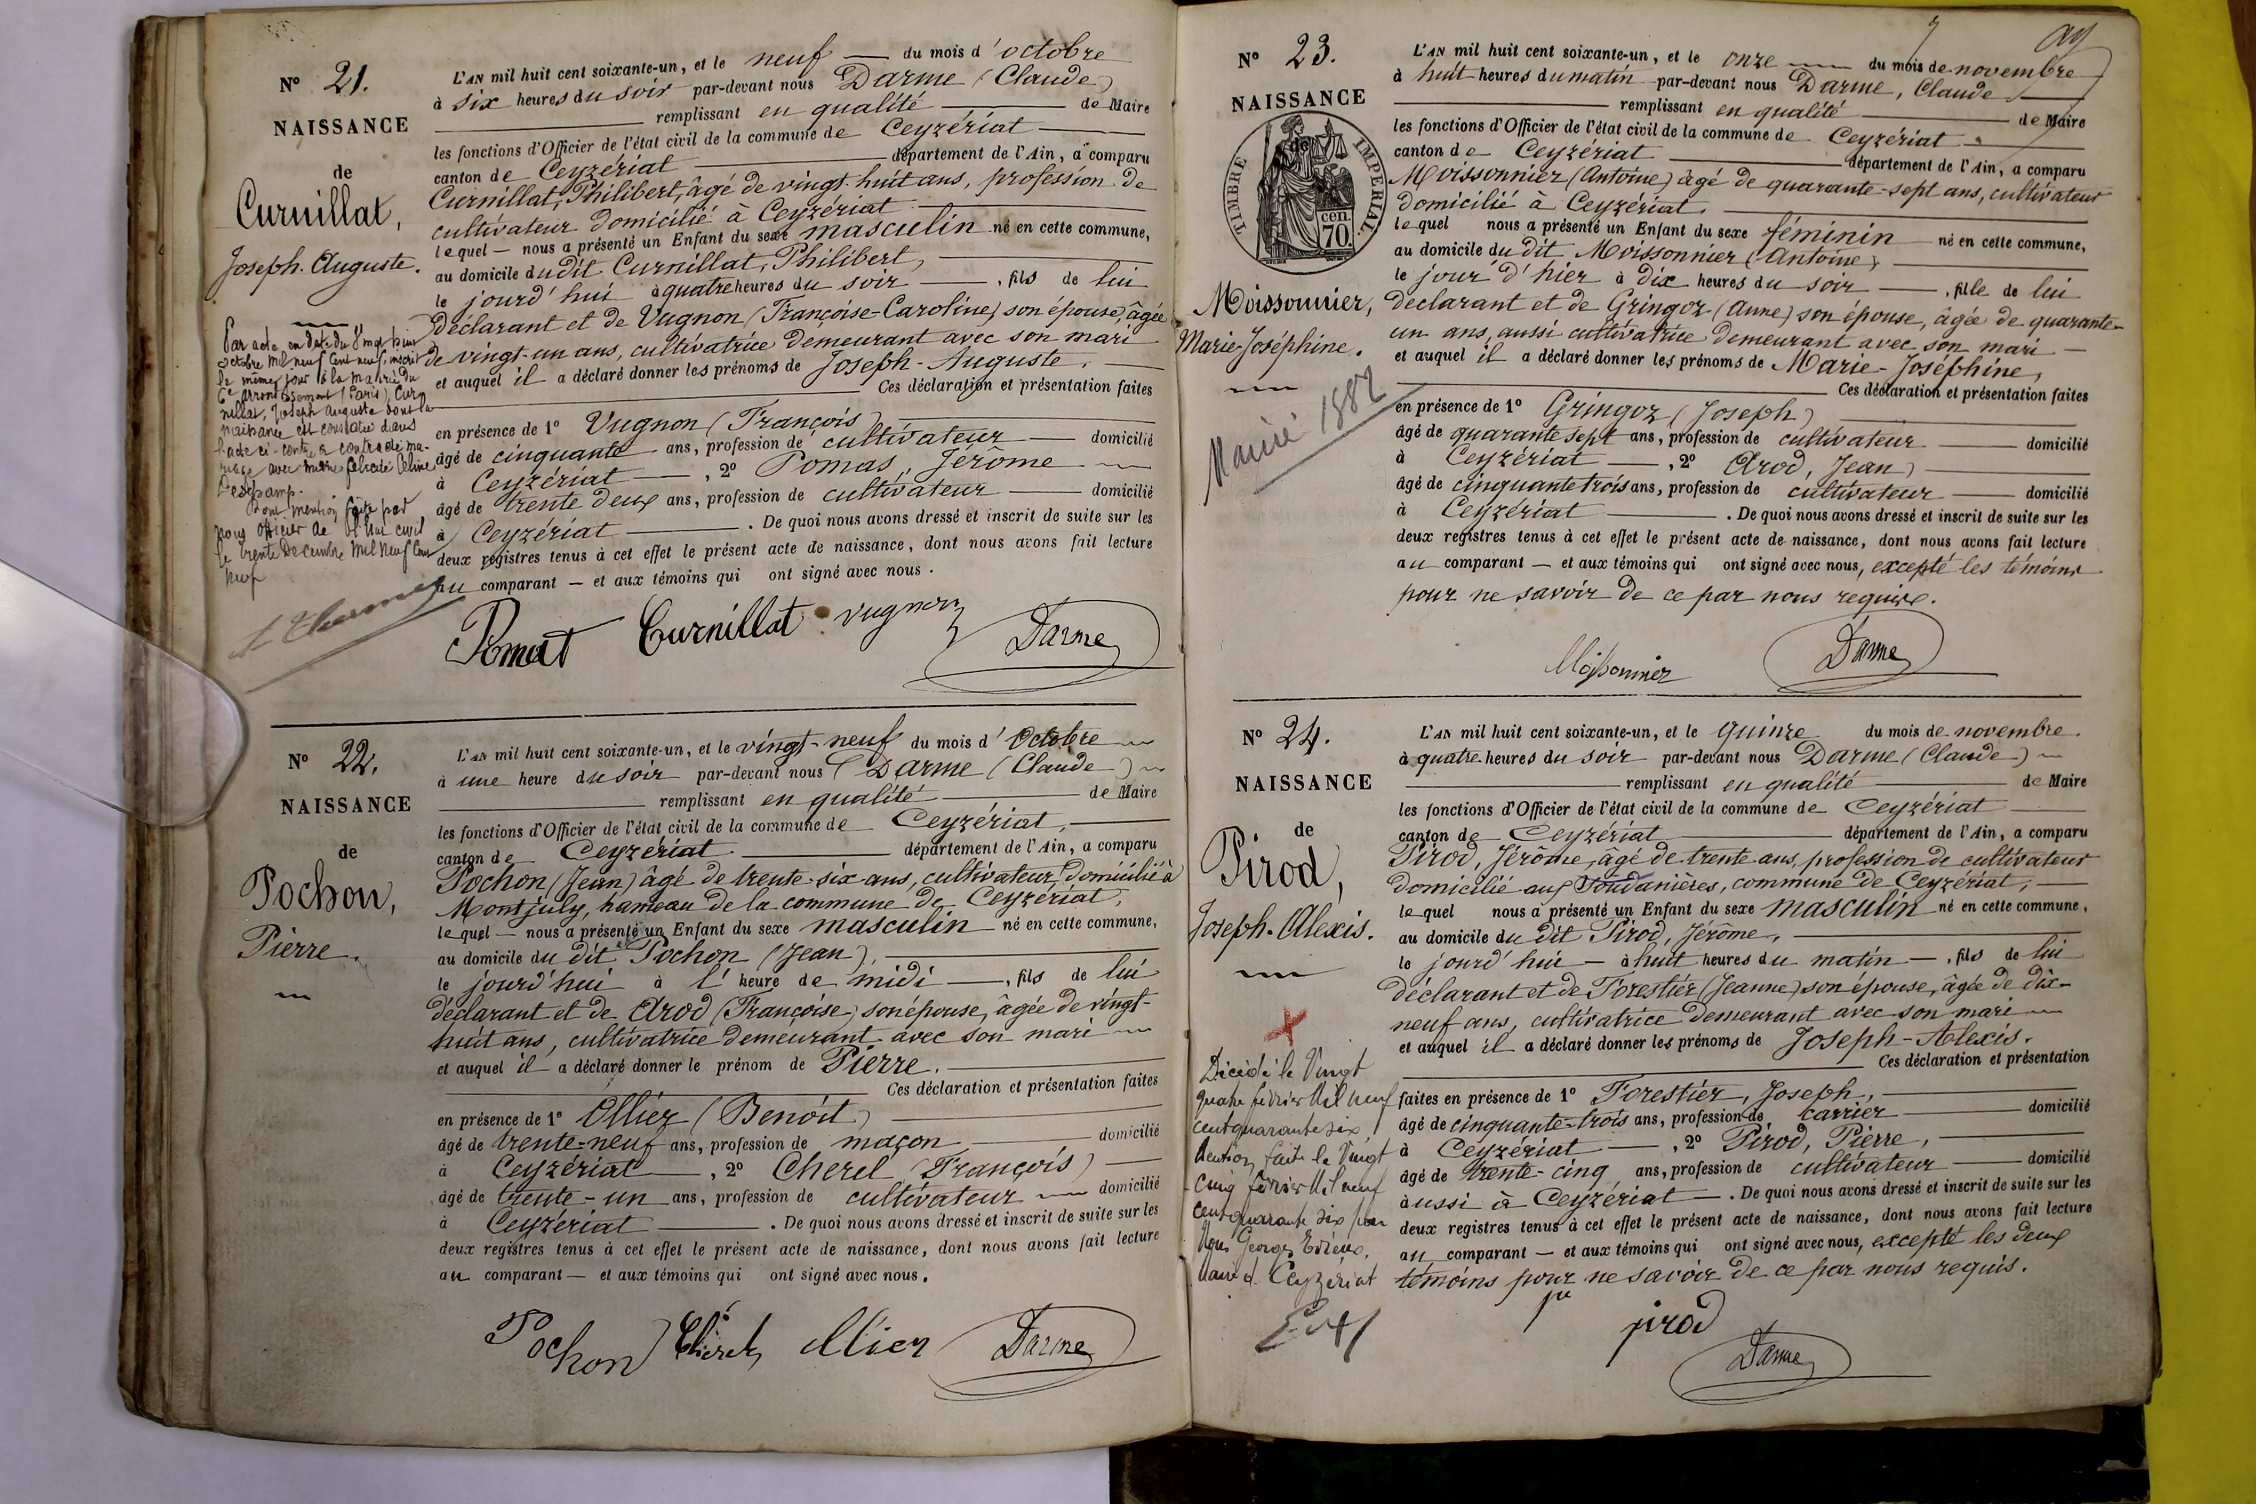 N° 21.
NAISSANCE
de
Curnillat,
Joseph-Auguste.
Par acte en date du
octobre mil neuf cent neuf, inscrit
le même jour à la mairie du
6e arrondissement (Paris), Cur
nillat, Joseph Auguste dont la
naissance est constatée dans
l'acte ci-contre a contracté ma-
riage avec Marie Félicité Céline
Deschamp.
Dont mention faite par
nous officier de l'état civil
le trente Décembre mil neuf cent
neuf
L'AN mil huit cent soixante-un, et le neuf du mois d'octobre
à six heures du soir par-devant nous Darme (Claude)
remplissant en qualité de Maire
les fonctions d'Officier de l'état civil de la commune de Ceyzériat
canton de Ceyzériat département de l'Ain, a comparu
Curnillat, Philibert, âgé de vingt-huit ans, profession de
cultivateur domicilié à Ceyzériat
lequel — nous a présenté un Enfant du sexe masculin né en cette commune,
au domicile du dit Curnillat, Philibert,
le jourd'hui à quatre heures du soir, fils de lui
déclarant et de Vugnon (Françoise-Caroline) son épouse, âgée
de vingt-un ans, cultivatrice demeurant avec son mari
et auquel il a déclaré donner les prénoms de Joseph-Auguste.
Ces déclaration et présentation faites
en présence de 1° Vugnon (François)
âgé de cinquante ans, profession de cultivateur domicilié
à Ceyzériat, 2° Pomas, Jérôme
âgé de trente deux ans, profession de cultivateur domicilié
à Ceyzériat. De quoi nous avons dressé et inscrit de suite sur les
deux registres tenus à cet effet le présent acte de naissance, dont nous avons fait lecture
au comparant — et aux témoins qui ont signé avec nous.
Curnillat vugnon Darme
N° 22.
NAISSANCE
de
Pochon,
Pierre.
L'AN mil huit cent soixante-un, et le vingt-neuf du mois d'Octobre
à une heure du soir par-devant nous Darme (Claude)
remplissant en qualité de Maire
les fonctions d'Officier de l'état civil de la commune de Ceyzériat,
canton de Ceyzériat département de l'Ain, a comparu
Pochon (Jean) âgé de trente-six ans, cultivateur, domicilié à
Montjuly, hameau de la commune de Ceyzériat,
lequel — nous a présenté un Enfant du sexe masculin né en cette commune,
au domicile du dit Pochon (Jean),
le jourd'hui à l'heure de midi, fils de lui
déclarant et de Arod (Françoise) son épouse, âgée de vingt-
huit ans, cultivatrice demeurant avec son mari
et auquel il a déclaré donner le prénom de Pierre.
Ces déclaration et présentation faites
en présence de 1° Ollier (Benoît)
âgé de trente-neuf ans, profession de maçon domicilié
à Ceyzériat, 2° Cherel (François)
âgé de trente-un ans, profession de cultivateur domicilié
à Ceyzériat. De quoi nous avons dressé et inscrit de suite sur les
deux registres tenus à cet effet le présent acte de naissance, dont nous avons fait lecture
au comparant — et aux témoins qui ont signé avec nous.
Pochon Cherel ollier Darme
N° 23.
NAISSANCE
de
TIMBRE IMPERIAL.
70. cen.
Moissonnier,
Marie-Joséphine.
Marié 1882
L'AN mil huit cent soixante-un, et le onze du mois de novembre
à huit heures du matin par-devant nous Darme, Claude
remplissant en qualité de Maire
les fonctions d'Officier de l'état civil de la commune de Ceyzériat
canton de Ceyzériat département de l'Ain, a comparu
Moissonnier (Antoine) âgé de quarante-sept ans, cultivateur
domicilié à Ceyzériat.
lequel nous a présenté un Enfant du sexe féminin né en cette commune,
au domicile du dit Moissonnier (Antoine),
le jour d'hier à dix heures du soir, fille de lui
déclarant et de Gringoz (Anne) son épouse, âgée de quarante-
un ans, aussi cultivatrice demeurant avec son mari
et auquel il a déclaré donner les prénoms de Marie-Joséphine,
Ces déclaration et présentation faites
en présence de 1° Gringoz (Joseph)
âgé de quarante sept ans, profession de cultivateur domicilié
à Ceyzériat, 2° Arod, Jean,
âgé de cinquante trois ans, profession de cultivateur domicilié
à Ceyzériat. De quoi nous avons dressé et inscrit de suite sur les
deux registres tenus à cet effet le présent acte de naissance, dont nous avons fait lecture
au comparant — et aux témoins qui ont signé avec nous, excepté les témoins
pour ne savoir de ce par nous requis.
Moissonnier Darme
N° 24.
NAISSANCE
de
Pirod,
Joseph-Alexis.
Décédé le Vingt
quatre février Mil neuf
cent quarante six
Mention faite le Vingt
cinq février Mil neuf
cent quarante six par
Nous Georges
Maire d Ceyzériat
L'AN mil huit cent soixante-un, et le quinze du mois de novembre.
à quatre heures du soir par-devant nous Darme (Claude)
remplissant en qualité de Maire
les fonctions d'Officier de l'état civil de la commune de Ceyzériat
canton de Ceyzériat département de l'Ain, a comparu
Pirod, Jérôme, âgé de trente ans, profession de cultivateur
domicilié aux Soudanières, commune de Ceyzériat,
lequel nous a présenté un Enfant du sexe masculin né en cette commune,
au domicile du dit Pirod, Jérôme,
le jourd'hui — à huit heures du matin —, fils de lui
déclarant et de Forestier (Jeanne) son épouse, âgée de dix-
neuf ans, cultivatrice demeurant avec son mari
et auquel il a déclaré donner les prénoms de Joseph-Alexis.
Ces déclaration et présentation
faites en présence de 1° Forestier, Joseph,
âgé de cinquante-trois ans, profession de carrier domicilié
à Ceyzériat, 2° Pirod, Pierre,
âgé de trente-cinq ans, profession de cultivateur domicilié
aussi à Ceyzériat. De quoi nous avons dressé et inscrit de suite sur les
deux registres tenus à cet effet le présent acte de naissance, dont nous avons fait lecture
au comparant — et aux témoins qui ont signé avec nous, excepté les deux
témoins pour ne savoir de ce par nous requis.
pirod
Darme